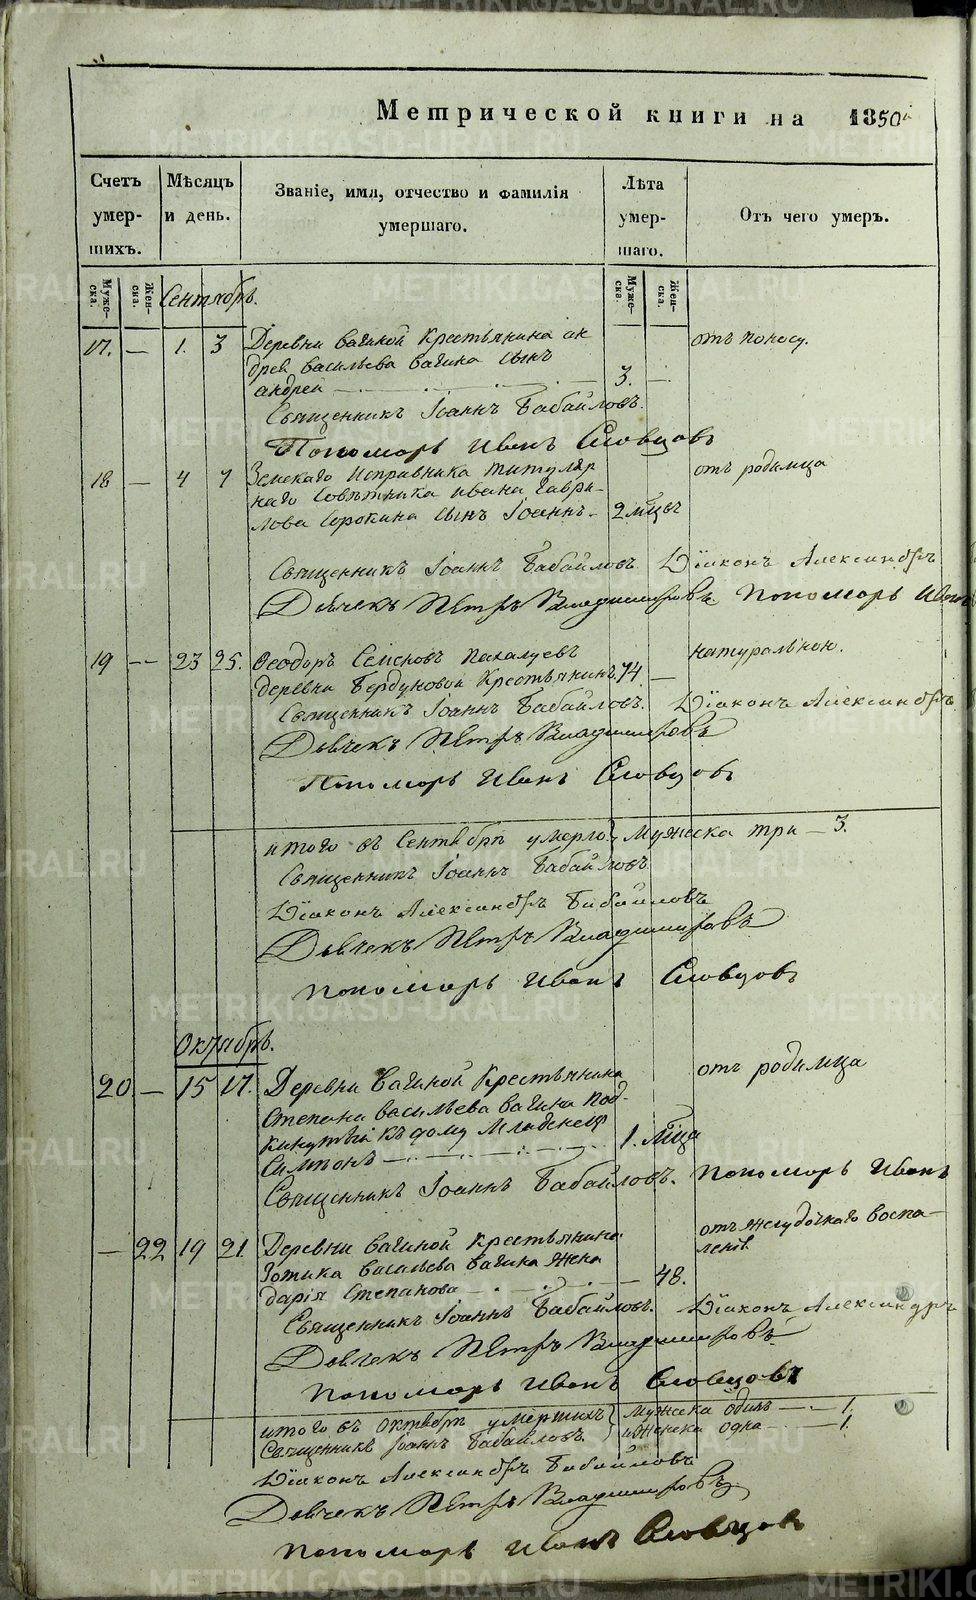 Метрической книги на 1850й
Счетъ умер-шихъ. Мѣсяцъ и день. Званіе, имя, отчество и фамилія умершаго. Лѣта умер-шаго. Отъ чего умеръ.
Муже-ска. Жен-ска. Муже-ска. Жен-ска.
Сентябрь.
17. — 1. 3 Деревни Вагиной Крестьянина Ан отъ поносу.
древ Васильева Вагина сынъ
Андрей 3. —
Священникъ Іоаннъ Бабайловъ.
Пономарь Иванъ Словцовъ
18 — 4 7 Земскаго Исправника титуляр отъ родимца
наго Совѣтника Ивана Гаври-
лова Сорокина сынъ Іоаннъ - 2 мѣсц
Священникъ Іоаннъ Бабайловъ Діаконъ Александръ
Дьячекъ Петръ Владимировъ Пономарь Иванъ
19 — 23 25. Феодоръ Семеновъ Пахалуевъ натуральною.
деревни Бердуновой Крестьянинъ 74 —
Священникъ Іоаннъ Бабайловъ. Діаконъ Александръ
Дьячекъ Петръ Владимировъ
Пономарь Иванъ Словцовъ
итого въ Сентябрѣ умерло } Мужеска три — 3.
Священникъ Іоаннъ Бабайловъ
Діаконъ Александръ Бабайловъ
Дьячекъ Петръ Владимировъ
Пономарь Иванъ Словцовъ
Октябрь.
20 — 15 17. Деревни Вагиной Крестьянина отъ родимца
Степана Васильева Вагина под-
кинутый къ дому Младенецъ
Симеонъ 1. мѣца
Священникъ Іоаннъ Бабайловъ. Пономарь Иванъ
— 22 19 21. Деревни Вагиной Крестьянина отъ желудочнаго воспа-
Зотика Васильева Вагина жена ленія
Дарія Степанова — 48.
Священникъ Іоаннъ Бабайловъ. Діаконъ Александръ
Дьячекъ Петръ Владимировъ
Пономарь Иванъ Словцовъ
итого въ Октябрѣ умершихъ } мужеска одинъ — 1.
Священникъ Іоаннъ Бабайловъ. } Женска одна — 1.
Діаконъ Александръ Бабайловъ
Дьячекъ Петръ Владимировъ
Пономарь Иванъ Словцовъ
METRIKI.GASO-URAL.RU